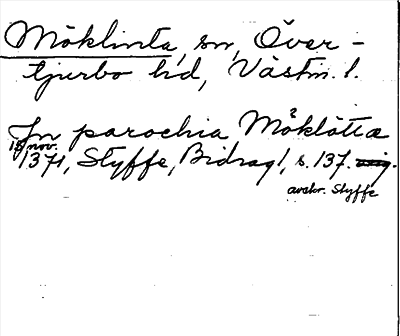 Möklinta, sn, Över-
tjurbo hd, Västm. l.
In parochia Mőklőtta
15 nov.
1371, Styffe, Bidrag 1, s. 137.
avskr. Styffe